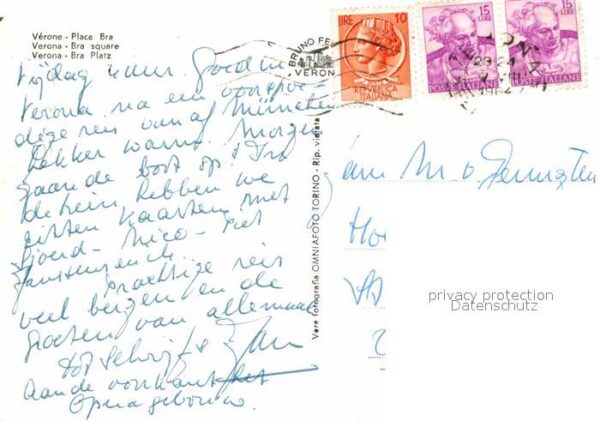 Vérone - Place Bra
Verona - Bra square
Verona - Bra Platz
Vrijdag 4 uur. Goed in
Verona na een voorspoe-
dige reis vanaf München
Lekker warm. Morgen
gaan de boot op. In
de trein hebben we
zitten kaarten met
Sjoerd - Nico - Piet
Prachtige reis
veel bergen en de
groeten van allemaal
tot schrijfs Jan
Aan de voorkant het
Operagebouw
Vera fotografia OMNIAFOTO TORINO - Rip. vietata
BRUNO FE
VERON
LIRE 10
REPVBBLICA
ITALIANA
15 LIRE
POSTE ITALIANE
15 LIRE
POSTE ITALIANE
23-24
1964
Jan M. v.
privacy protection
Datenschutz